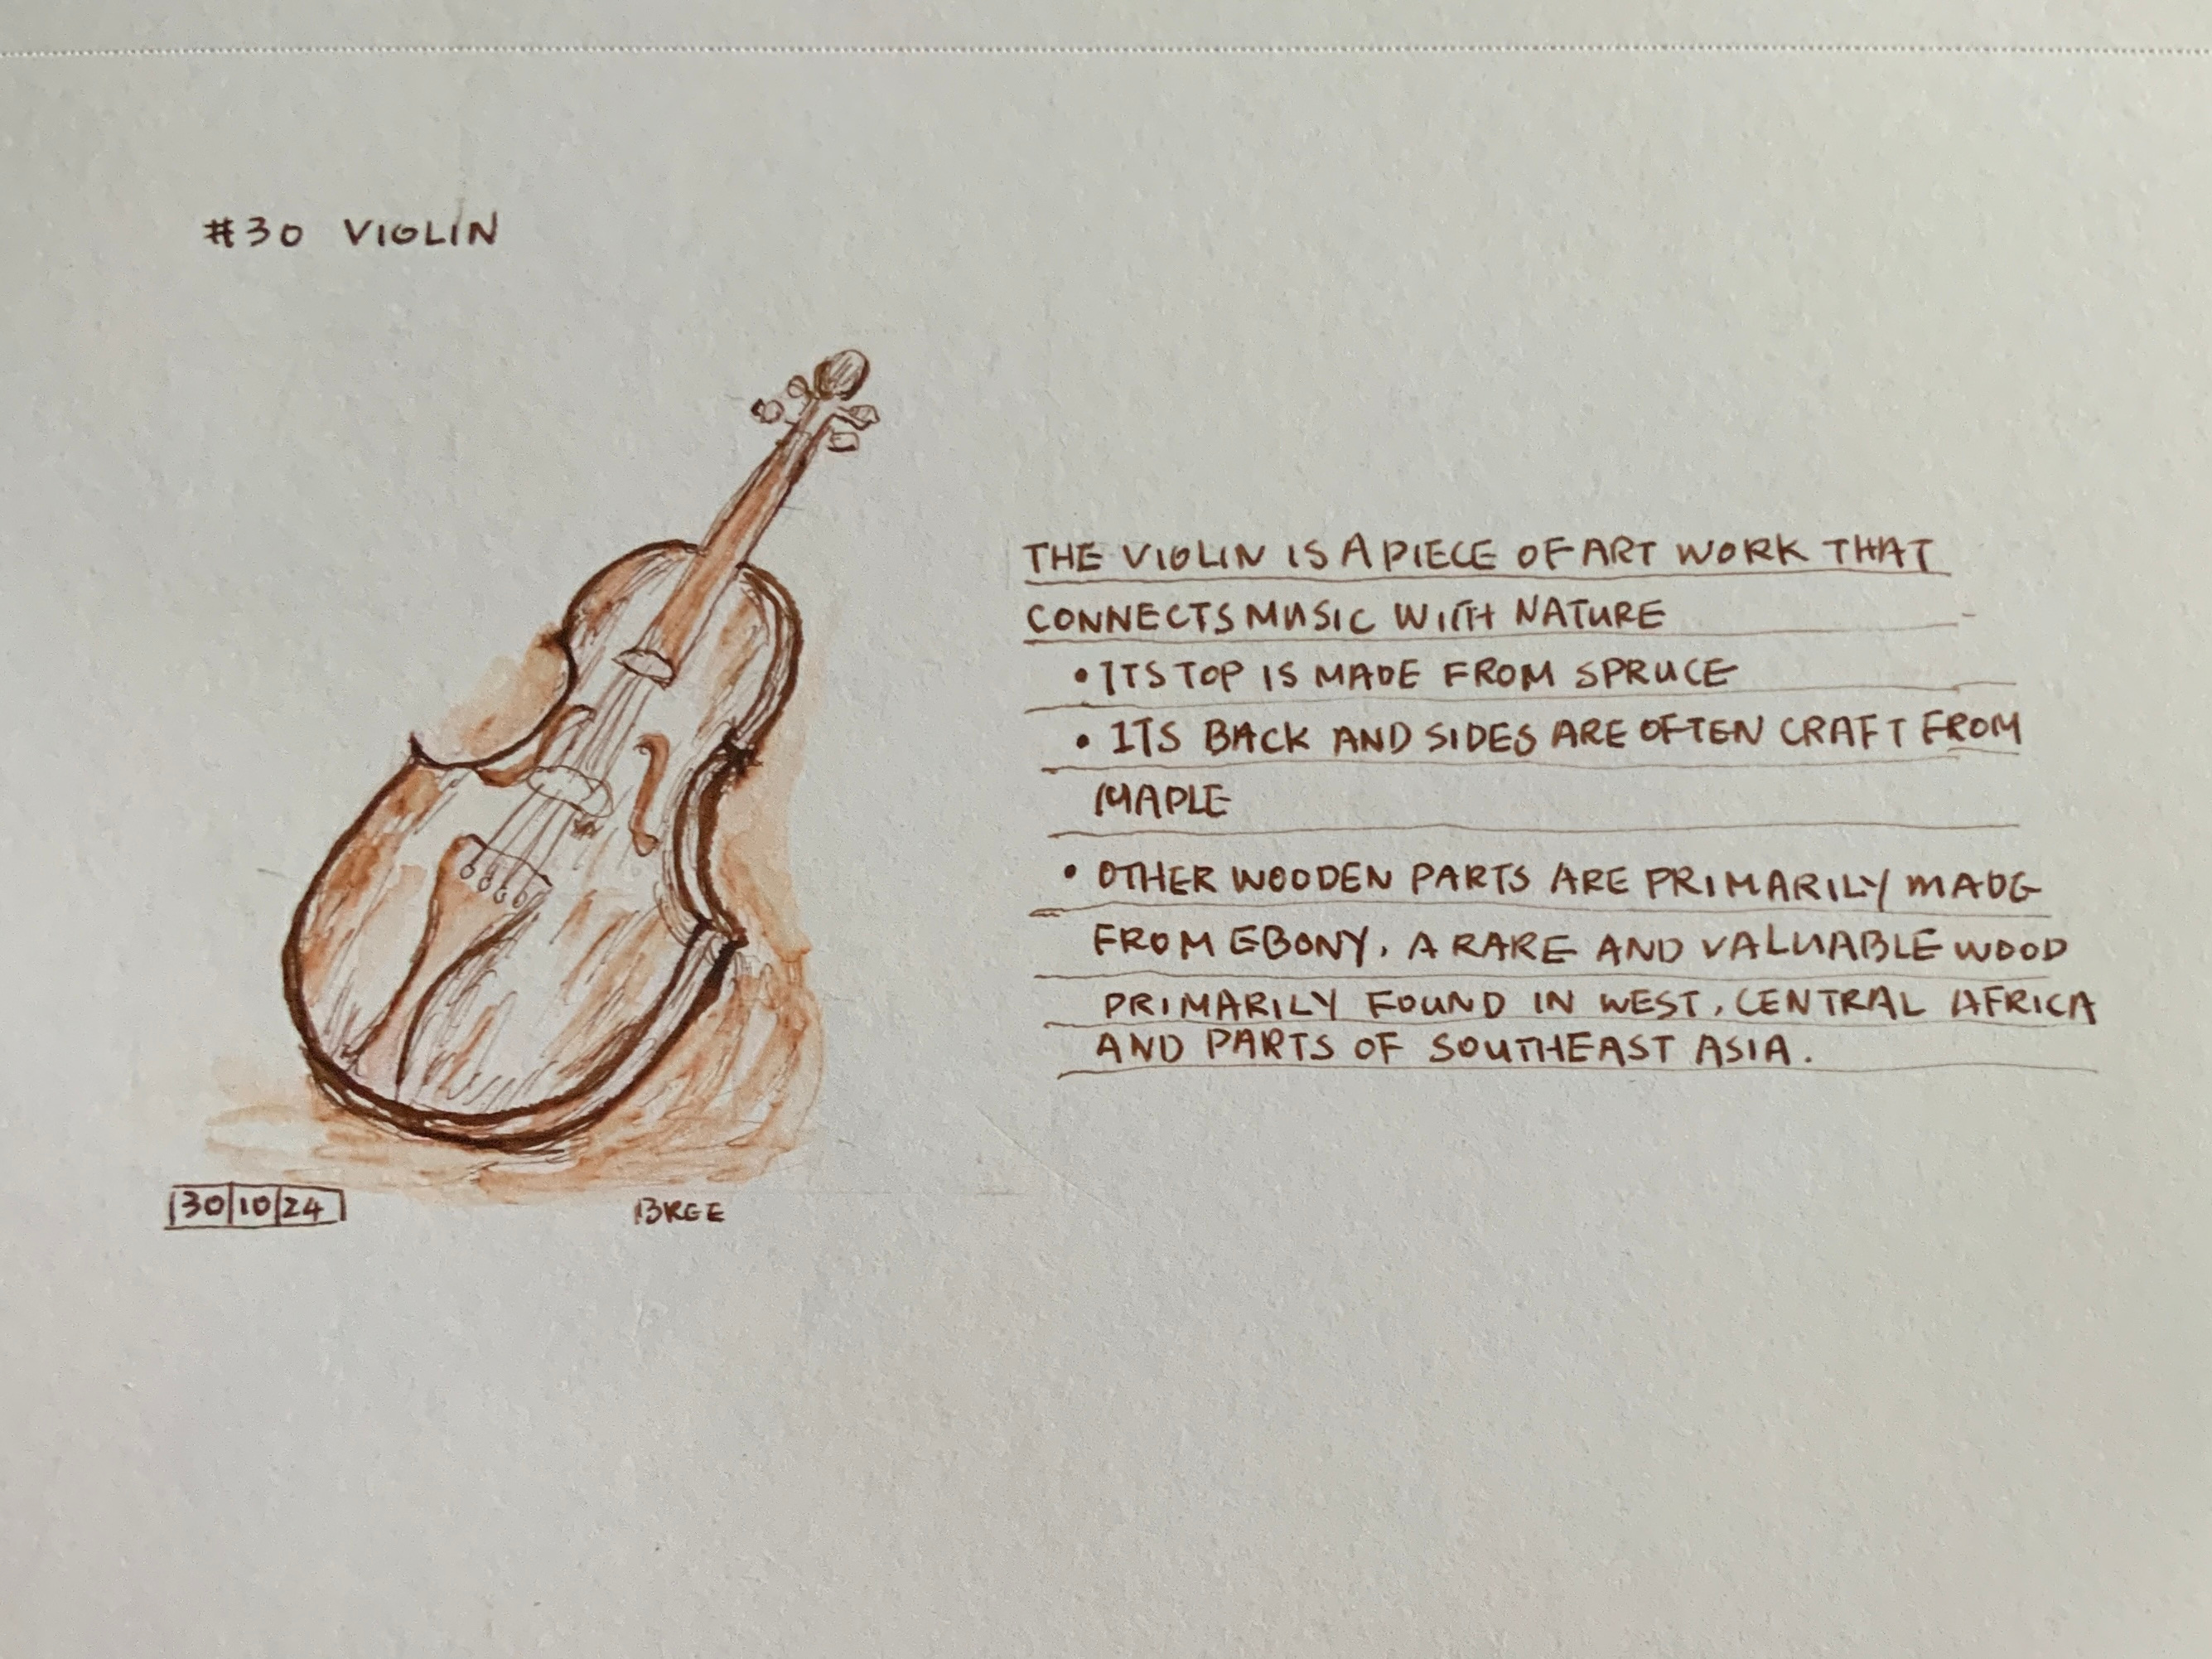 #30 VIOLIN
THE VIOLIN IS A PIECE OF ART WORK THAT
CONNECTS MUSIC WITH NATURE
• ITS TOP IS MADE FROM SPRUCE
• ITS BACK AND SIDES ARE OFTEN CRAFT FROM
MAPLE
• OTHER WOODEN PARTS ARE PRIMARILY MADE
FROM EBONY, A RARE AND VALUABLE WOOD
PRIMARILY FOUND IN WEST, CENTRAL AFRICA
AND PARTS OF SOUTHEAST ASIA.
30|10|24
BREE